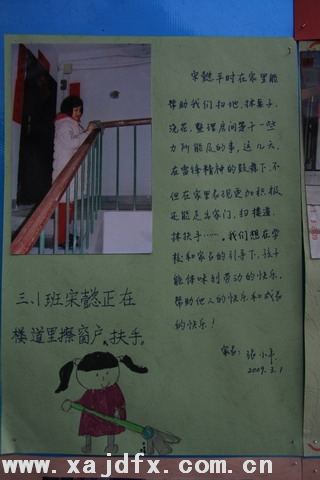 宋懿平时在家里能
帮助我们扫地、抹桌子、
浇花、整理房间等一些
力所能及的事,这几天,
在雷锋精神的鼓舞下,不
但在家里表现更加积极
还能走出家门,扫楼道、
抹扶手……。我们想在学
校和家长的引导下,孩子
能体味到劳动的快乐,
帮助他人的快乐和成长
的快乐!
家长:张小平
2009.3.1
三.1班宋懿正在
楼道里擦窗户、扶手。
www.xajdfx.com.cn